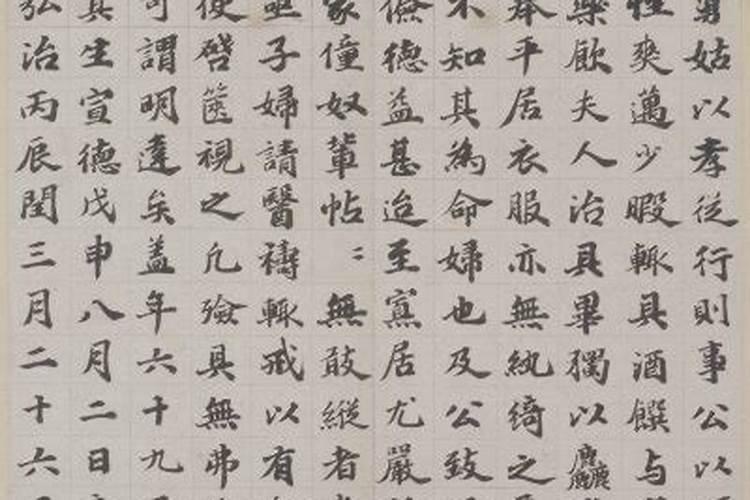 舅姑以孝従行則事公以
性爽邁少暇輒具酒饌与
樂飲夫人治具畢獨以麤
奉平居衣服亦無紈綺之
不知其為命婦也及公致
儉德益甚迨至寡居尤嚴
家僮奴輩帖〻無敢縱者
亟子婦請醫禱輒戒以有
使啓篋視之凡殮具無弗
可謂明達矣盖年六十九
其生宣德戊申八月二日
弘治丙辰閏三月二十六